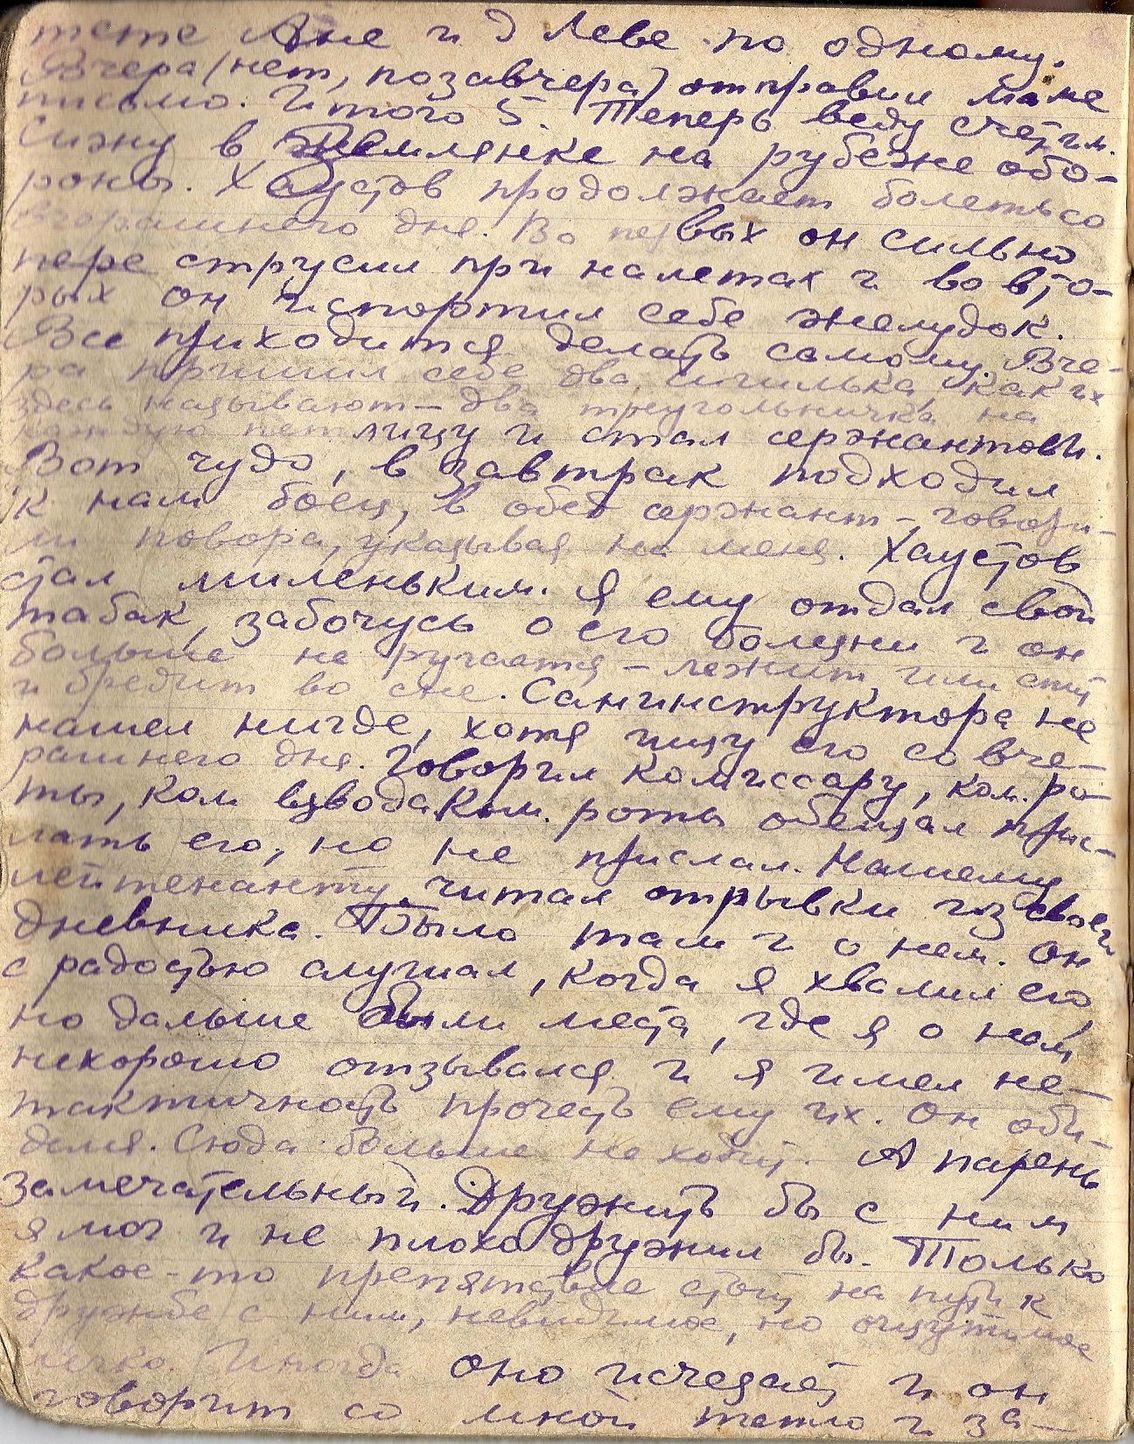 тете Ане и д Леве по одному.
Вчера (нет, позавчера) отправил маме
письмо. Итого 5. Теперь веду счет им.
Сижу в землянке на рубеже обо-
роны. Хаустов продолжает болеть со
вчерашнего дня. Во первых он сильно
перетрусил при налетах и во вто-
рых он испортил себе желудок.
Все приходится делать самому. Вче-
ра пришил себе два сигилька, как их
здесь называют — два треугольничка на
каждую петлицу и стал сержантом.
Вот чудо, в завтрак подходил
к нам боец, в обед сержант — говори-
ли повара, указывая на меня. Хаустов
стал миленьким. Я ему отдал свой
табак, забочусь о его болезни и он
больше не ругается — лежит или спит
и бредит во сне. Санинструктора не
нашел нигде, хотя ищу его со вче-
рашнего дня. Говорил комиссару, ком. ро-
ты, ком взвода. Ком. роты обещал прис-
лать его, но не прислал. Нашему
лейтенанту читал отрывки из своего
дневника. Было там и о нем. Он
с радостью слушал, когда я хвалил его
но дальше были места, где я о нем
нехорошо отзывался и я имел не-
тактичность прочесть ему их. Он оби-
делся. Сюда больше не ходит. А парень
замечательный. Дружить бы с ним
я мог и не плохо дружил бы. Только
какое-то препятствие стоит на пути к
дружбе с ним, невидимое, но ощутимое
Иногда оно исчезает и он
говорит со мной тепло и за-